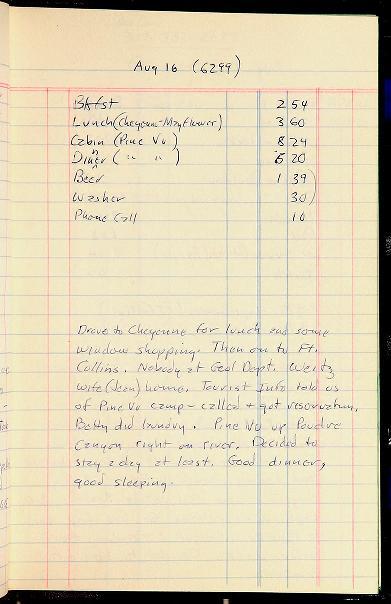 Aug 16 (6299)
Bkfst 2 54
Lunch (Cheyenne-Mayflower) 3 60
Cabin (Pine Vu) 8 24
Dinner ( " " ) 5 20
Beer 1 39
Washer 30
Phone Call 10
Drove to Cheyenne for lunch and some
window shopping. Then on to Ft.
Collins. Nobody at Geol Dept. Weitz
wife (Jean) home. Tourist Info told us
of Pine Vu camp - called + got reservation.
Betty did laundry. Pine Vu up Poudre
Canyon right on river. Decided to
stay a day at least. Good dinner,
good sleeping.